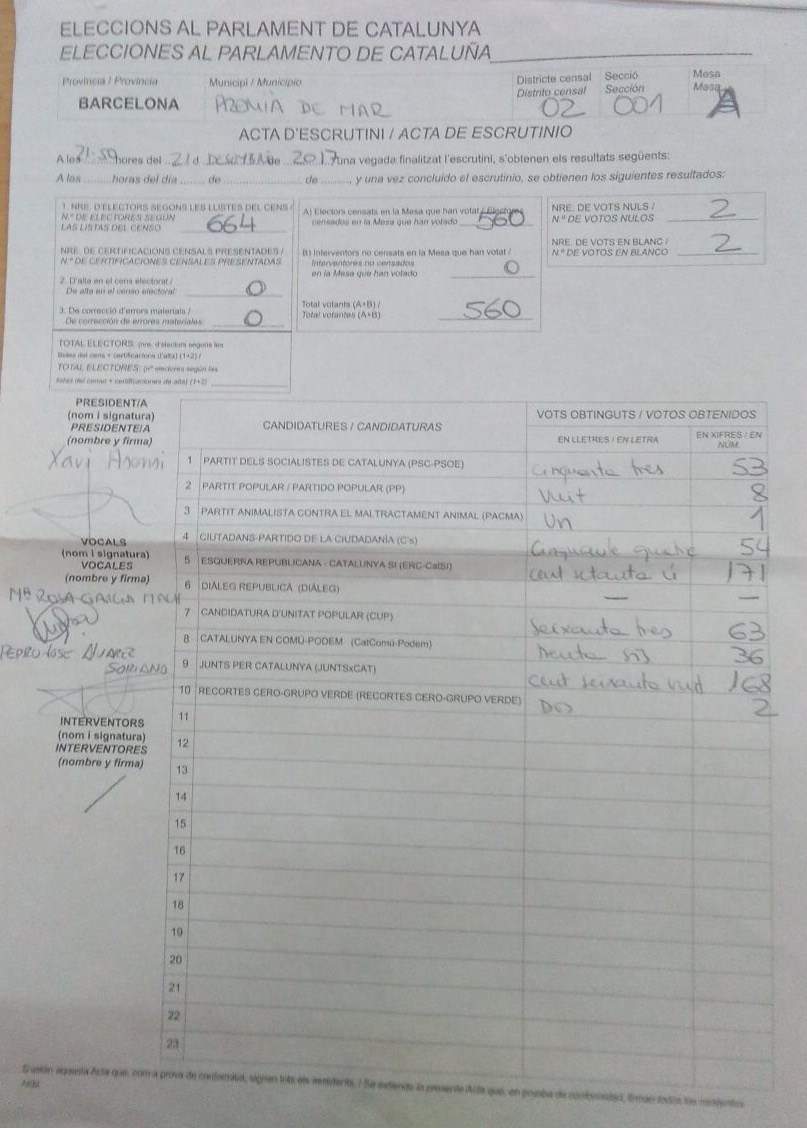 ELECCIONS AL PARLAMENT DE CATALUNYA
ELECCIONES AL PARLAMENTO DE CATALUÑA
Província / Provincia
Municipi / Municipio
Districte censal
Distrito censal
Secció
Sección
Mesa
Mesa
BARCELONA
PREMIA DE MAR
02
001
A
ACTA D'ESCRUTINI / ACTA DE ESCRUTINIO
A les 21:59 hores del 21 d DESEMBRE de 2017 una vegada finalitzat l'escrutini, s'obtenen els resultats següents:
A las ........ horas del día ....... de ..................... de ........, y una vez concluido el escrutinio, se obtienen los siguientes resultados:
1. NRE. D'ELECTORS SEGONS LES LLISTES DEL CENS /
N.º DE ELECTORES SEGÚN
LAS LISTAS DEL CENSO
664
NRE. DE CERTIFICACIONS CENSALS PRESENTADES /
N.º DE CERTIFICACIONES CENSALES PRESENTADAS
2. D'alta en el cens electoral /
De alta en el censo electoral:
0
3. De correcció d'errors materials /
De corrección de errores materiales:
0
TOTAL ELECTORS: (nre. d'electors segons les
llistes del cens + certificacions d'alta) (1+2) /
TOTAL ELECTORES: (nº electores según las
listas del censo + certificaciones de alta) (1+2)
A) Electors censats en la Mesa que han votat / Electores
censados en la Mesa que han votado
560
B) Interventors no censats en la Mesa que han votat /
Interventores no censados
en la Mesa que han votado
0
Total votants (A+B) /
Total votantes (A+B)
560
NRE. DE VOTS NULS /
N.º DE VOTOS NULOS
2
NRE. DE VOTS EN BLANC /
N.º DE VOTOS EN BLANCO
2
PRESIDENT/A
(nom i signatura)
PRESIDENTE/A
(nombre y firma)
Xavi
VOCALS
(nom i signatura)
VOCALES
(nombre y firma)
Mª ROSA GARCIA
PEDRO JOSE ALVAREZ
SORIANO
INTERVENTORS
(nom i signatura)
INTERVENTORES
(nombre y firma)
CANDIDATURES / CANDIDATURAS
VOTS OBTINGUTS / VOTOS OBTENIDOS
EN LLETRES / EN LETRA
EN XIFRES / EN
NÚM.
1 PARTIT DELS SOCIALISTES DE CATALUNYA (PSC-PSOE) cinquanta tres 53
2 PARTIT POPULAR / PARTIDO POPULAR (PP) vuit 8
3 PARTIT ANIMALISTA CONTRA EL MALTRACTAMENT ANIMAL (PACMA) Un 1
4 CIUTADANS-PARTIDO DE LA CIUDADANÍA (C's) Cinquanta quatre 54
5 ESQUERRA REPUBLICANA - CATALUNYA SI (ERC-CatSí) cent setanta ú 171
6 DIÀLEG REPUBLICÀ (DIÀLEG) — —
7 CANDIDATURA D'UNITAT POPULAR (CUP) seixanta tres 63
8 CATALUNYA EN COMÚ-PODEM (CatComú-Podem) trenta sis 36
9 JUNTS PER CATALUNYA (JUNTSxCAT) cent seixanta vuit 168
10 RECORTES CERO-GRUPO VERDE (RECORTES CERO-GRUPO VERDE) Dos 2
11
12
13
14
15
16
17
18
19
20
21
22
23
S'estén aquesta Acta que, com a prova de conformitat, signen tots els assistents. / Se extiende la presente Acta que, en prueba de conformidad, firman todos los asistentes.